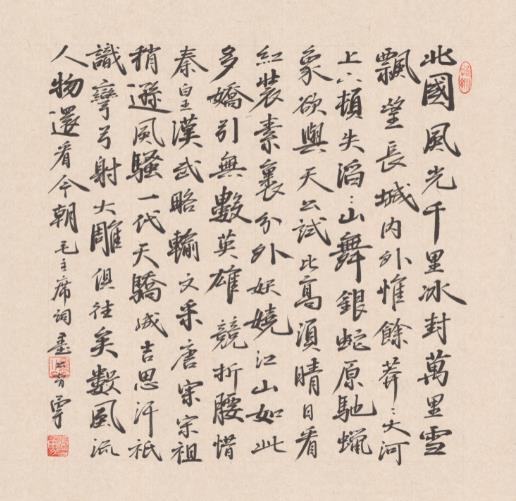 北國風光千里冰封萬里雪
飄望長城內外惟餘莽〻大河
上下頓失滔〻山舞銀蛇原馳蠟
象欲與天公試比高須晴日看
紅裝素裹分外妖嬈江山如此
多嬌引無數英雄競折腰惜
秦皇漢武略輸文采唐宗宋祖
稍遜風騷一代天驕成吉思汗祇
識彎弓射大雕俱往矣數風流
人物還看今朝毛主席詞